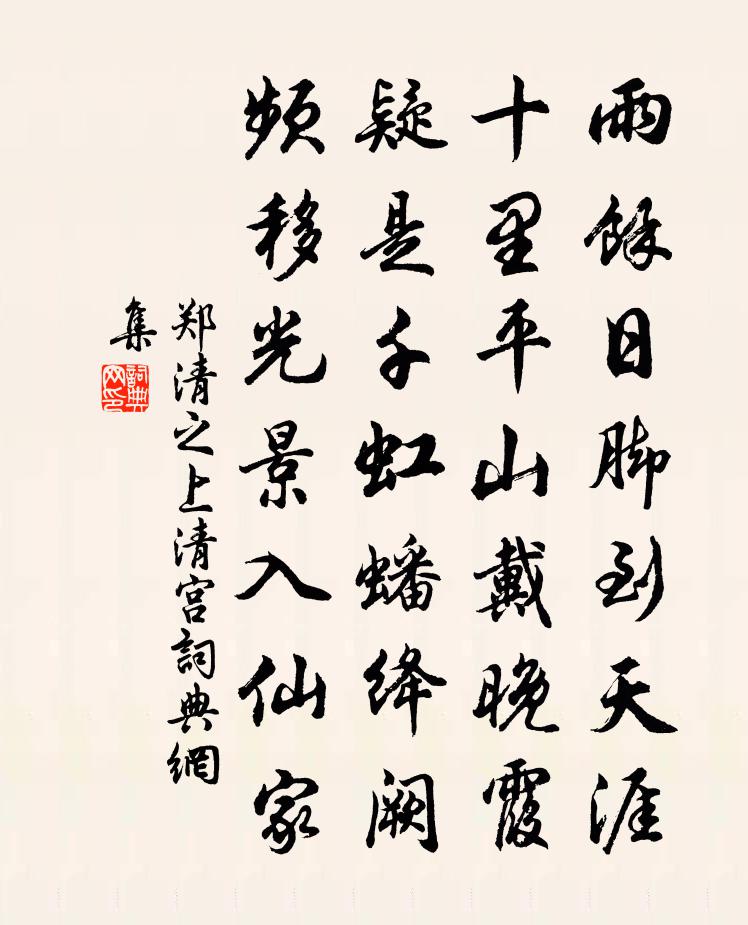 雨餘日脚到天涯
十里平山戴晚霞
疑是千虹蟠绛阙
频移光景入仙家
郑清之上清宫詞典網
集
詞典
网印